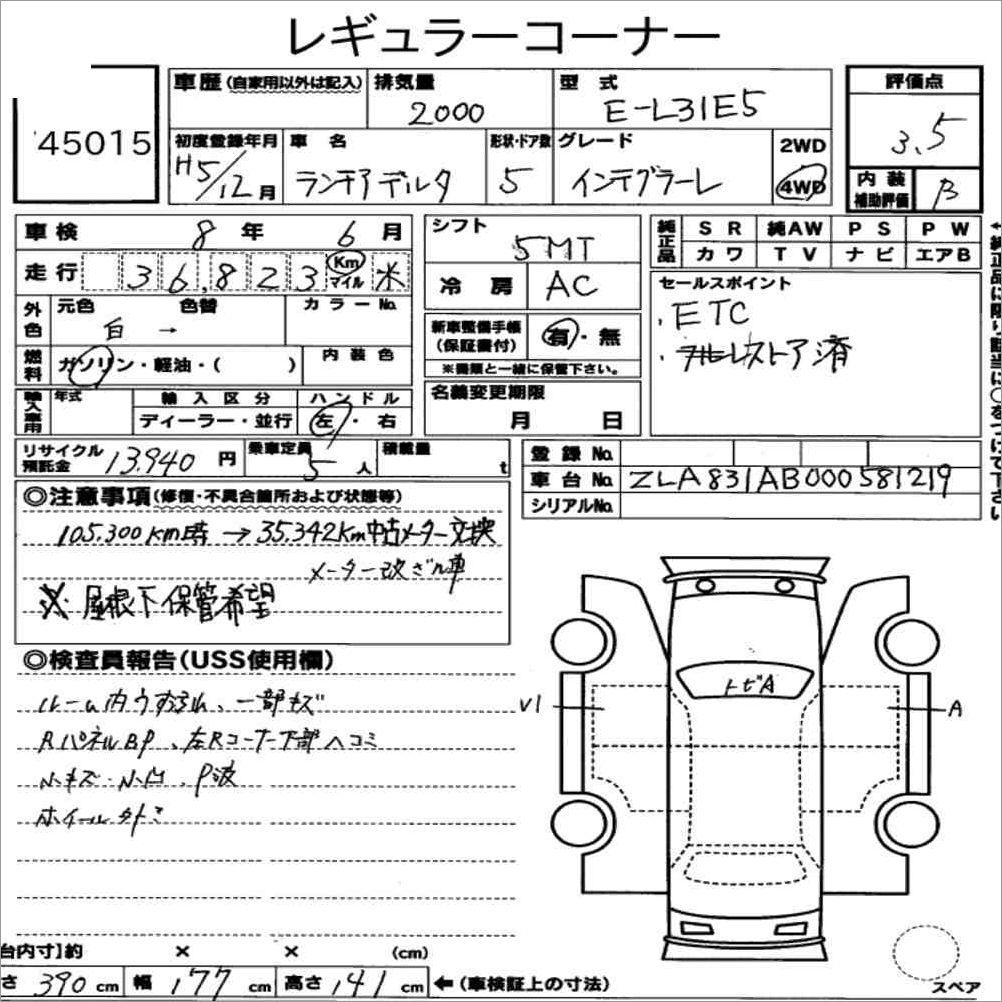 レギュラーコーナー
45015
車歴(自家用以外は記入) 排気量 2000 型式 E-L31E5 評価点 3.5
初度登録年月 H5/12月 車名 ランチアデルタ 形状・ドア数 5 グレード インテグラーレ 2WD 4WD 内装補助評価 B
車検 8年 6月 シフト 5MT 純正品 SR 純AW PS PW
カワ TV ナビ エアB
走行 36,823 Km マイル 米 冷房 AC セールスポイント
外色 元色 白 → 色替 カラーNo. 新車整備手帳(保証書付) 有・無 ・ETC
・フルレストア済
燃料 ガソリン・軽油・( ) 内装色 ※書類と一緒に保管下さい。
輸入車用 年式 輸入区分 ディーラー・並行 ハンドル 左・右 名義変更期限 月 日
←純正品に限り該当に○をつけて下さい
リサイクル預託金 13,940円 乗車定員 5人 積載量 t 登録No.
車台No. ZLA831AB000581219
シリアルNo.
◎注意事項(修復・不具合箇所および状態等)
105.300Km時 → 35.342Km中古メーター交換
メーター改ざん車
※屋根下保管希望
◎検査員報告(USS使用欄)
ルーム内うすろれ、一部キズ
RパネルBP、左Rコーナー下部ヘコミ
小キズ・小凹、P波
ホイールタイミ
トビA
V1
A
スペア
台内寸]約 × × (cm)
さ 390cm 幅 177cm 高さ 141cm ←(車検証上の寸法)